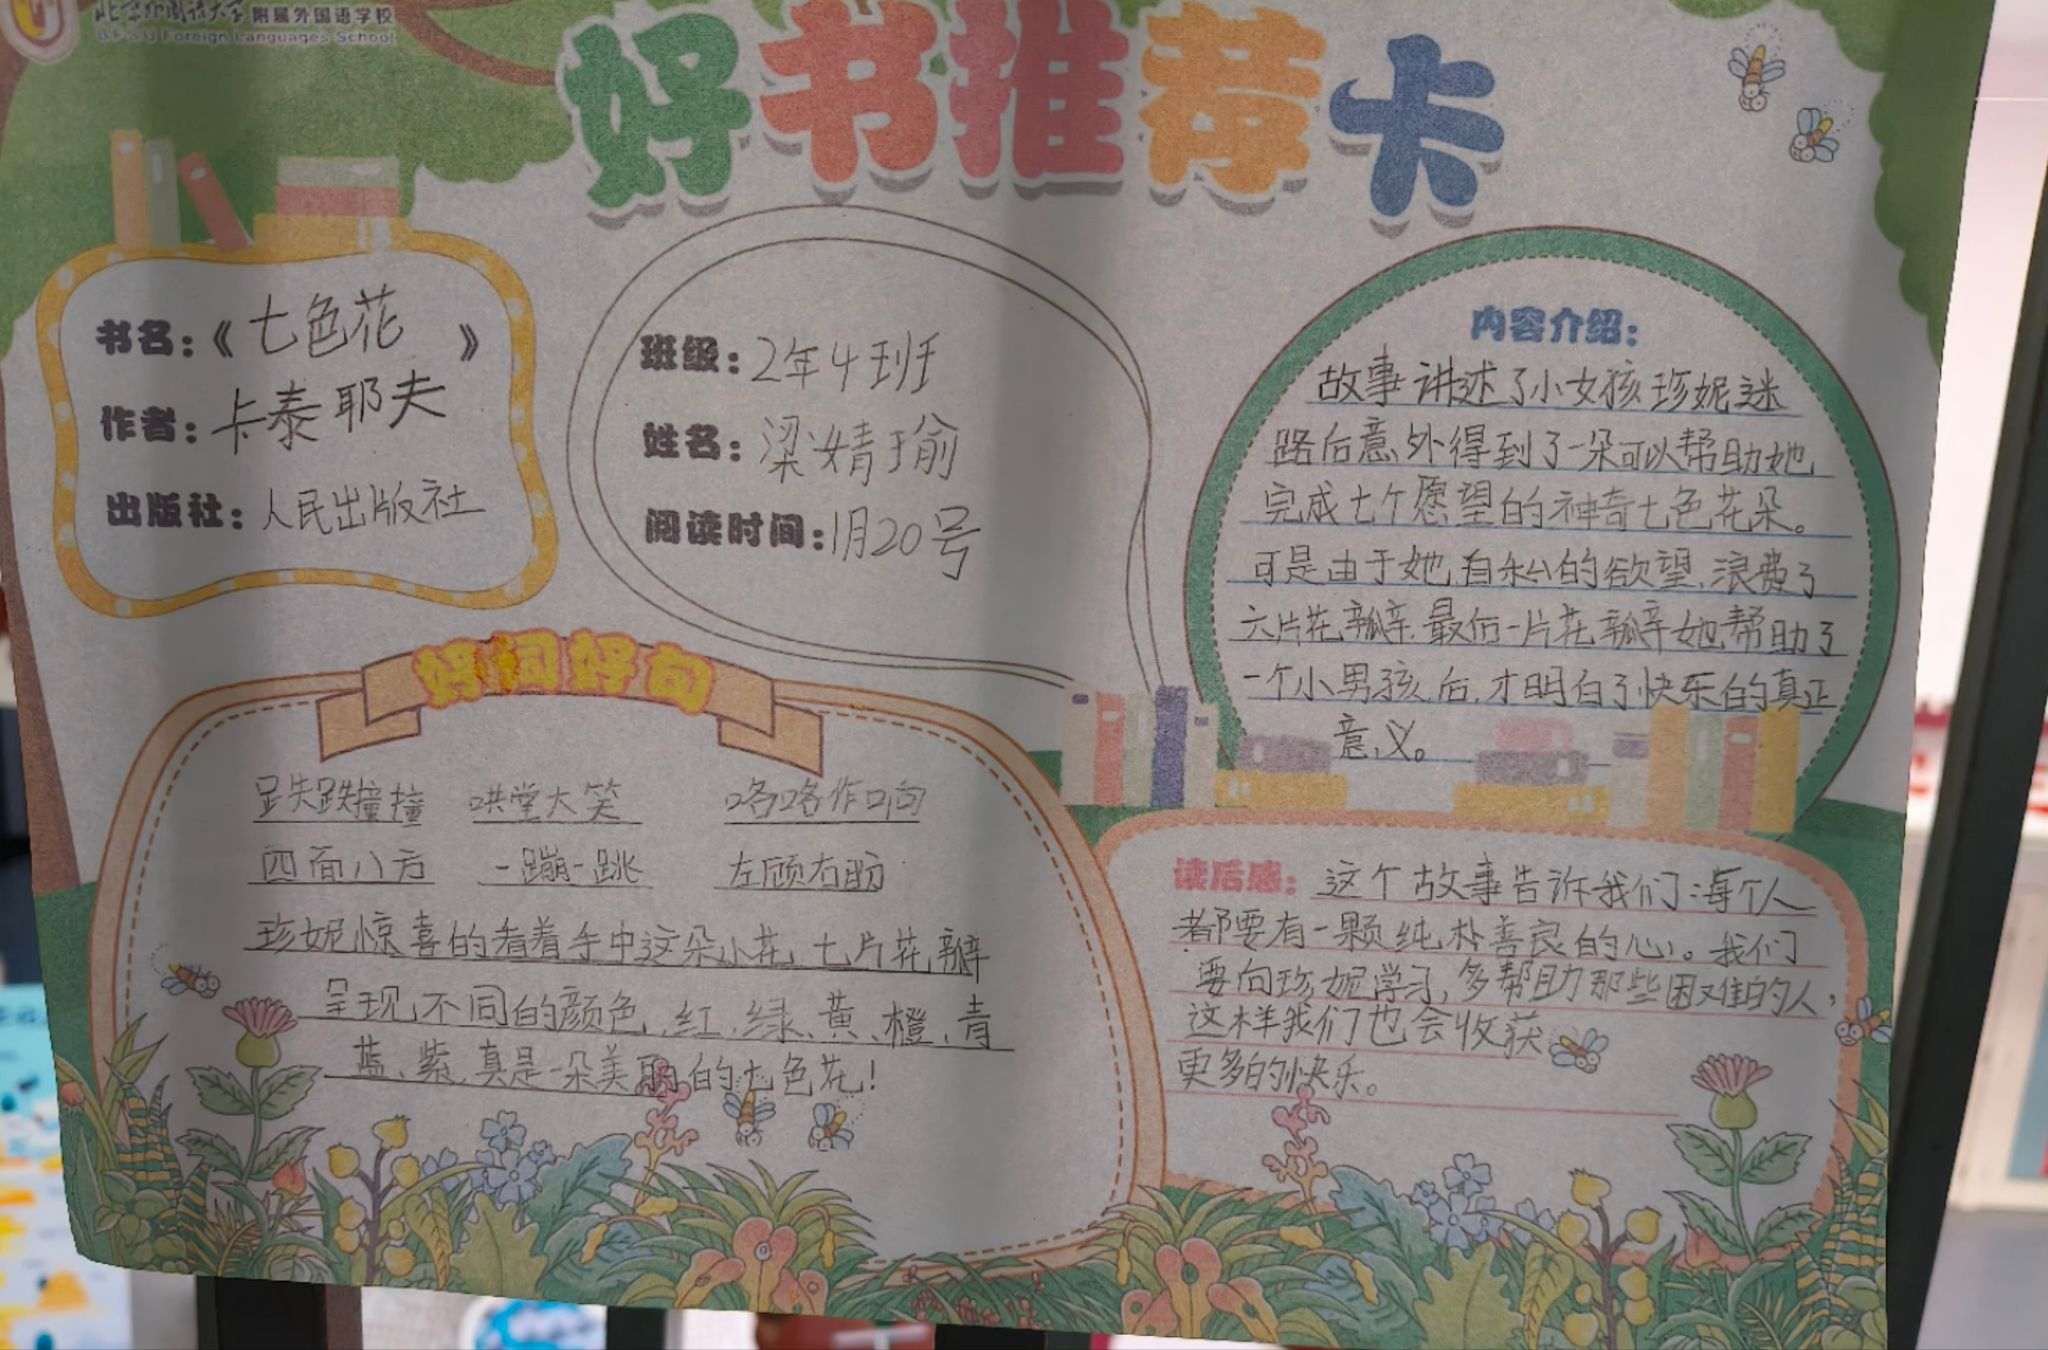 北京外国语大学附属外国语学校
BFSU Foreign Languages School
好书推荐卡
书名:《七色花》
作者:卡泰耶夫
出版社:人民出版社
班级:2年4班
姓名:梁婧瑜
阅读时间:1月20号
内容介绍:
故事讲述了小女孩珍妮迷
路后意外得到了一朵可以帮助她
完成七个愿望的神奇七色花朵。
可是由于她自私的欲望,浪费了
六片花瓣,最后一片花瓣她帮助了
一个小男孩后,才明白了快乐的真正
意义。
好词好句
跌跌撞撞 哄堂大笑 咯咯作响
四面八方 一蹦一跳 左顾右盼
珍妮惊喜的看着手中这朵小花,七片花瓣
呈现不同的颜色,红、绿、黄、橙、青
蓝、紫,真是一朵美丽的七色花!
读后感:这个故事告诉我们:每个人
都要有一颗纯朴善良的心。我们
要向珍妮学习,多帮助那些困难的人,
这样我们也会收获
更多的快乐。